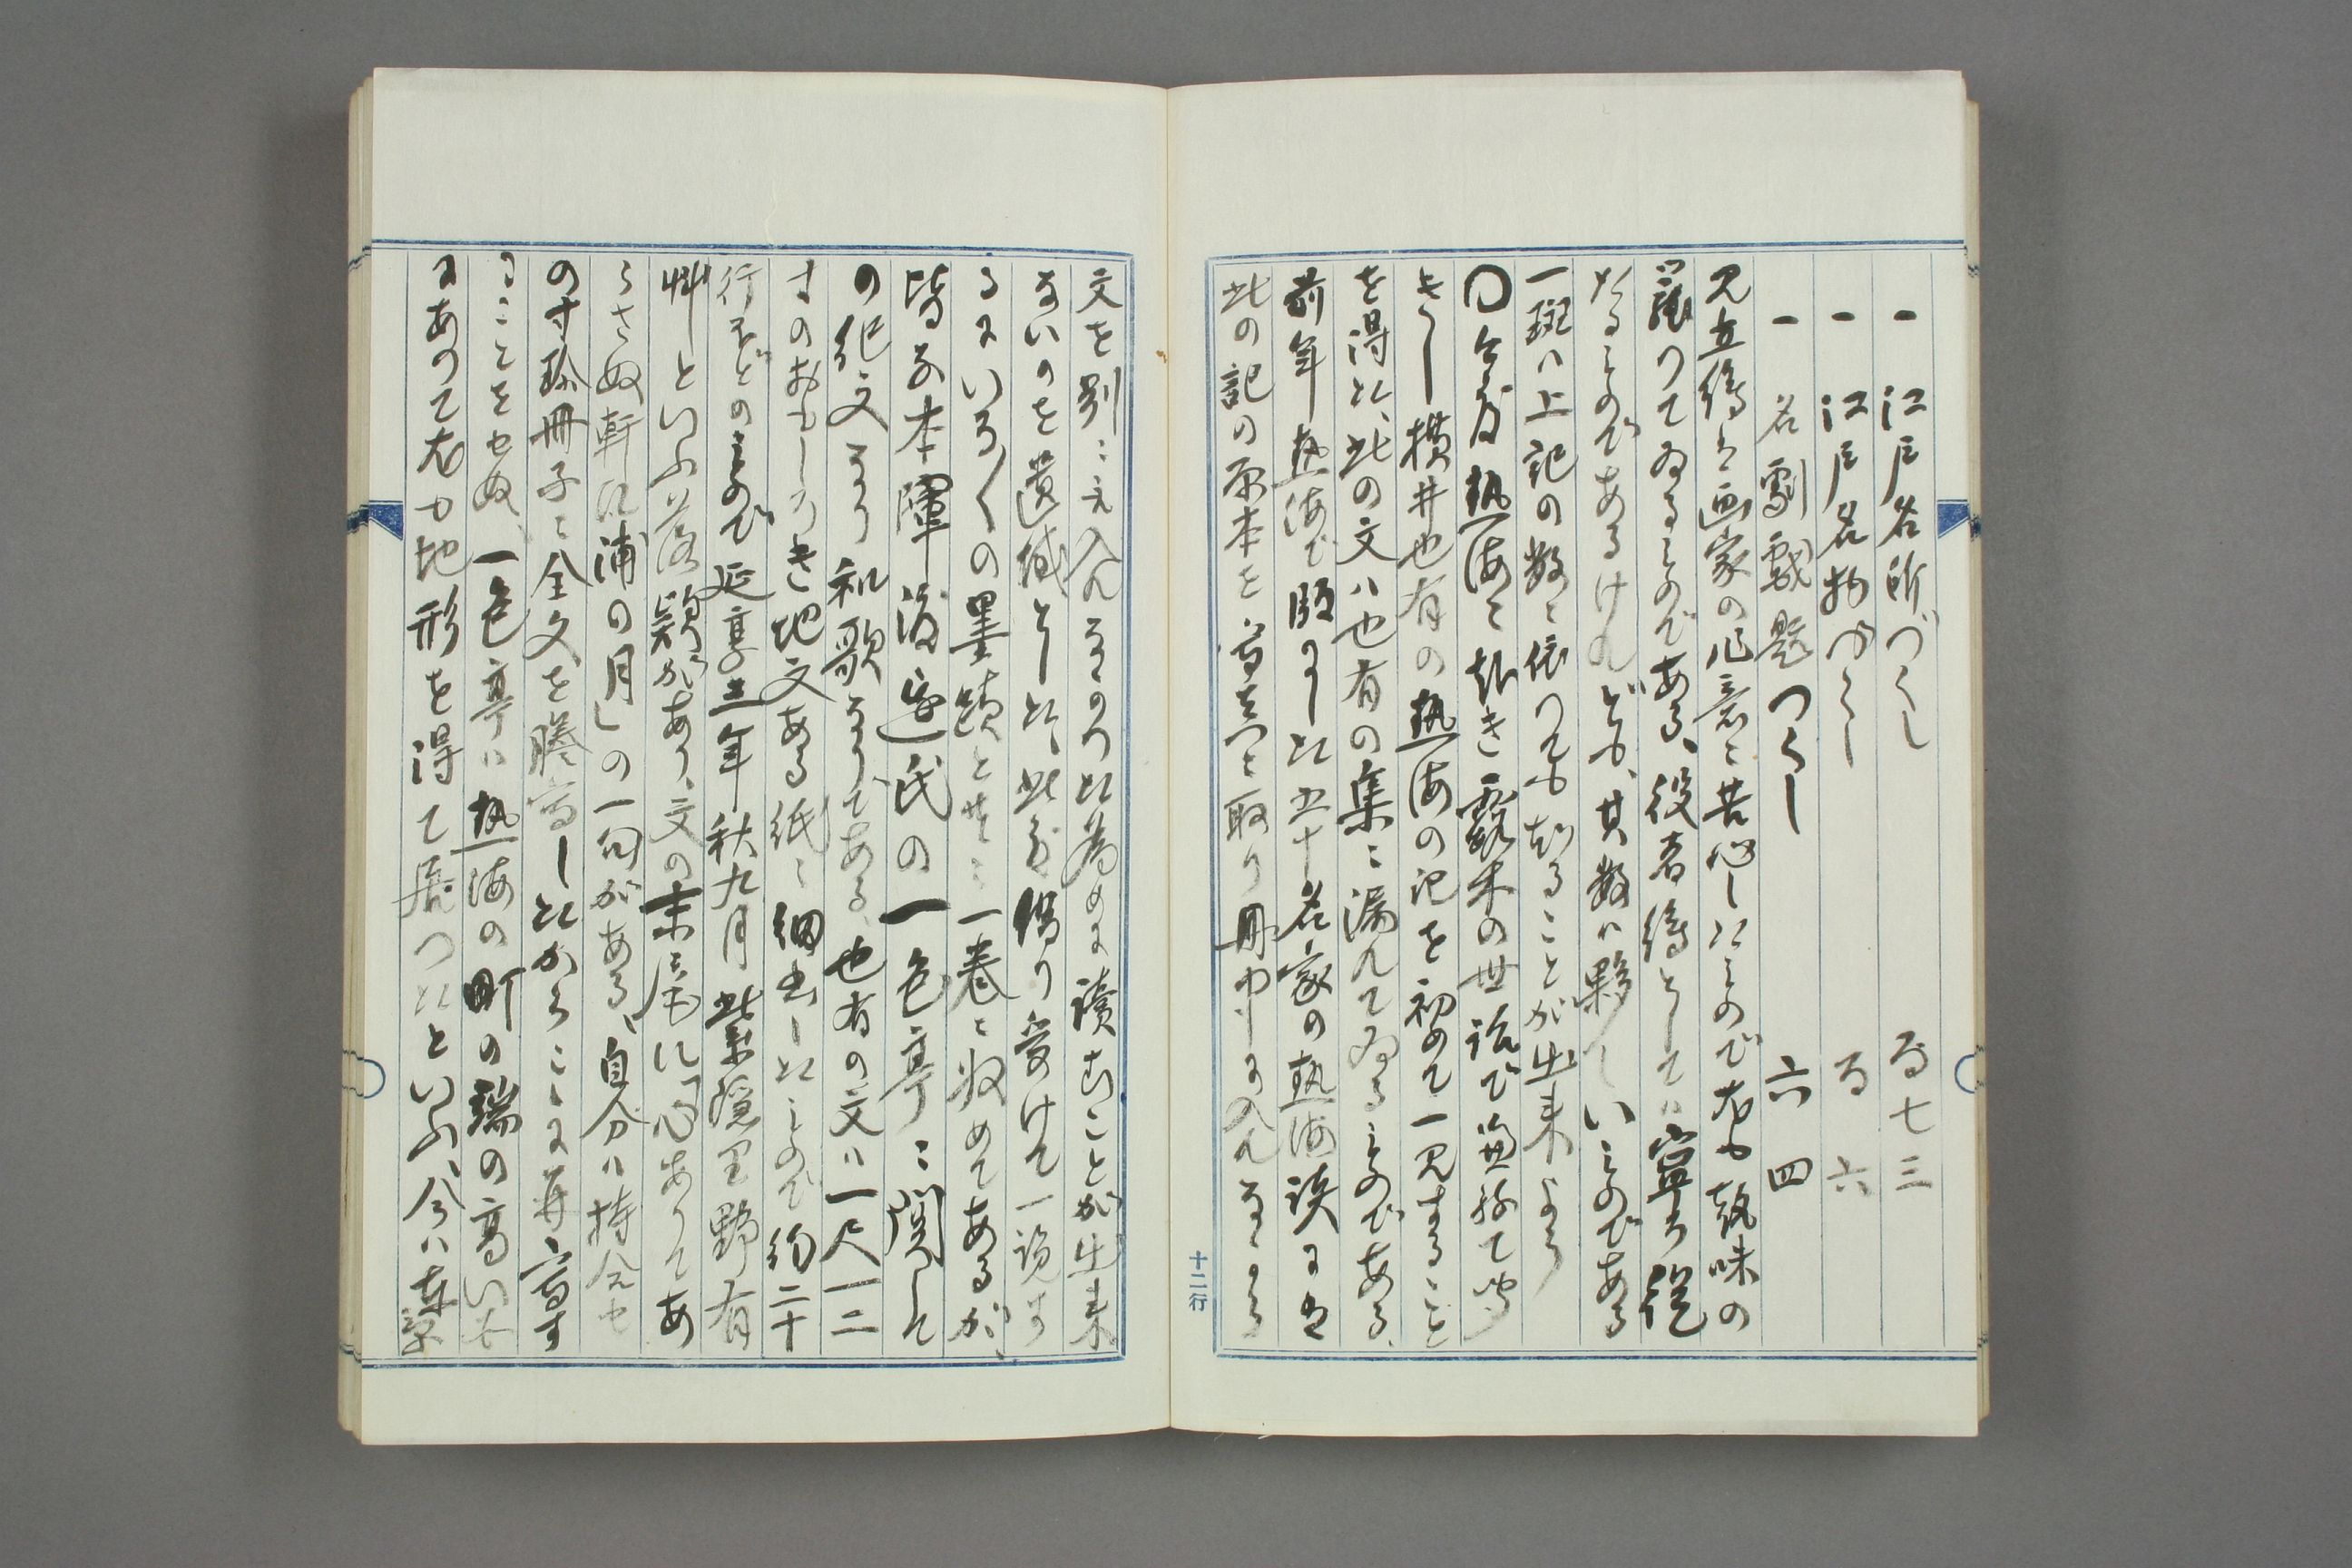 一 江戸名所づくし 仝 七三
一 江戸名物づくし 仝 六
一 名劇戯題つくし 六四
見立絵は画家の作意に苦心したもので尤も趣味の
籠つてゐるものである、役者絵としては寧ろ従
たるものであるけれども、其数は夥しいものである
一斑は上記の数に依つても知ることが出来よう
〇今度熱海に赴き露木の世話で兼ねて聞
きし横井也有の熱海の記を初めて一見すること
を得た、此の文は也有の集に漏れてゐるものである、
前年熱海で販りし た五十名家の熱海談には
此の記の原本を写真に取り冊中に入れ
文を別に入れなかつた為めに読むことが出来
ないのを遺憾とした、此度借り受けて一読す
るにいろ〳〵の墨蹟と共に一巻に収めてあるが、
皆な本陣渡辺氏の一色亭に関して
の作文なり和歌なりである、也有の文は一尺一二
寸のおもしろき地文ある紙に細書したもので約二十
行ほどのもので延享三年秋九月紫隠里野有
艸といふ落款があり、文の末尾に「心ありてあ
らさぬ軒に浦の月」の一句がある、自分は持合せ
の寸珍冊子に全文を謄写したからこゝに再写す
ることをせぬ、一色亭は熱海の町の端の高い処
にあつて尤も地形を得て居つたといふ、今は
十二行